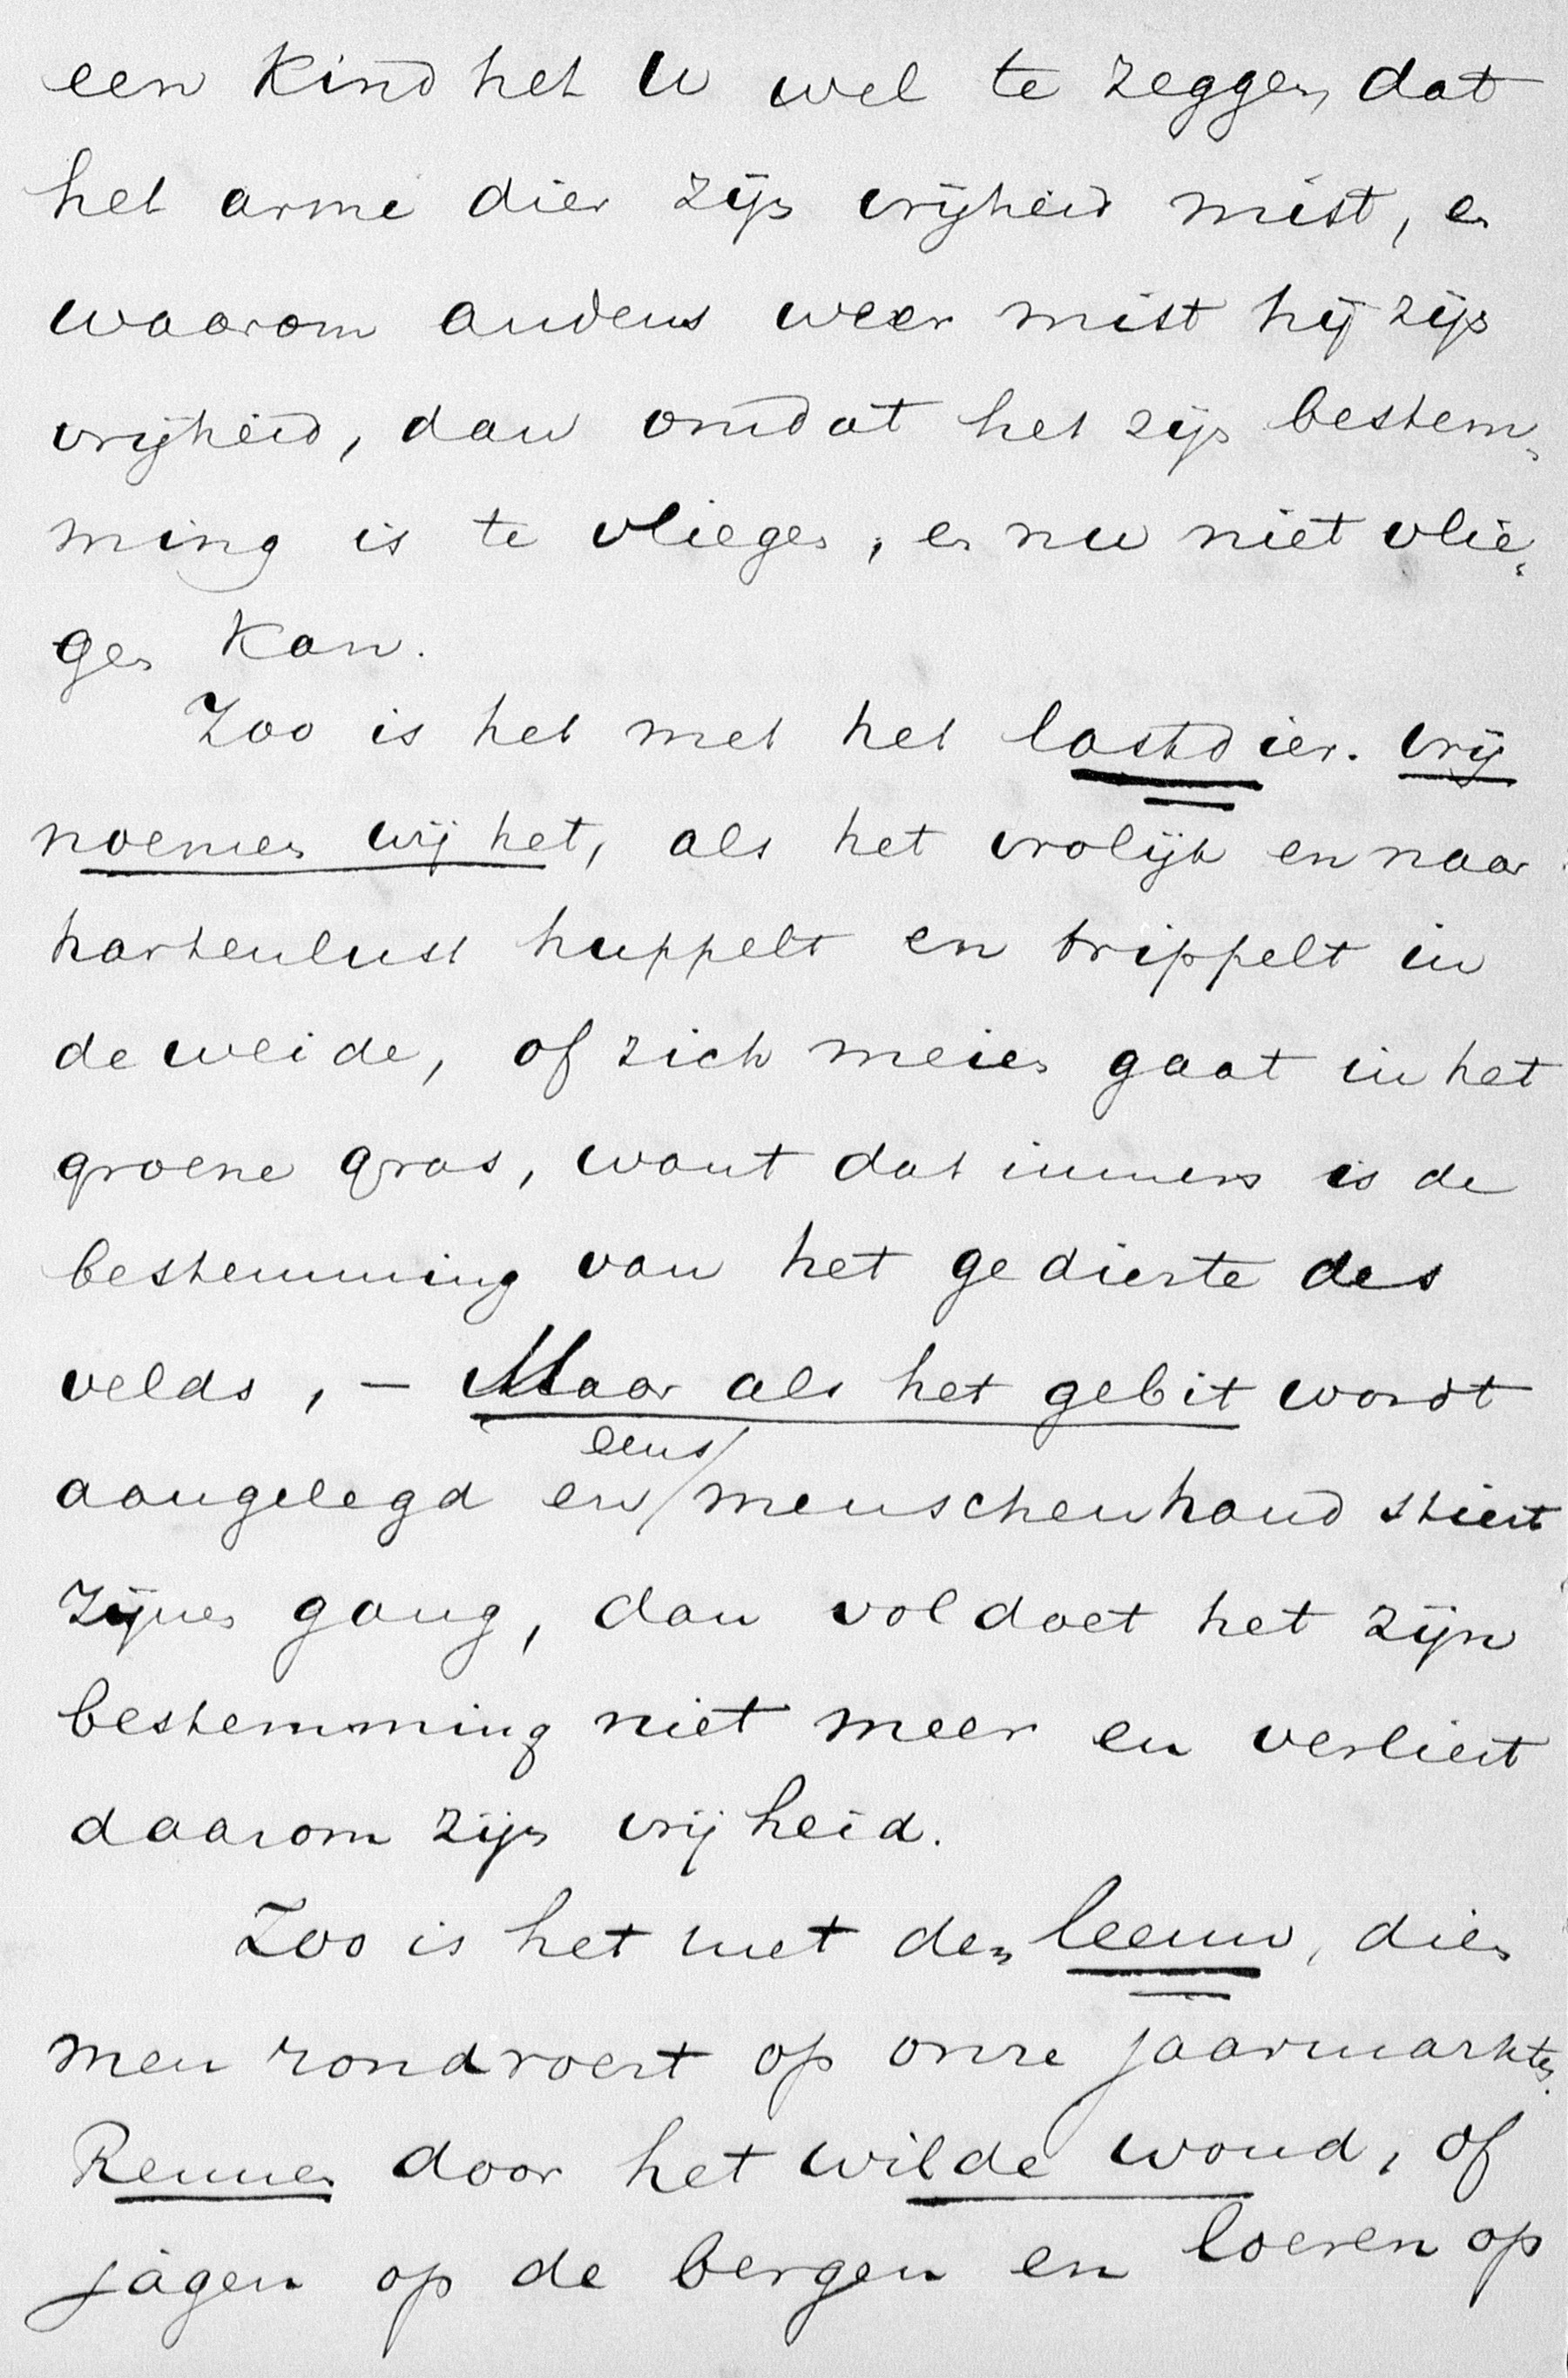 een kind het U wel te zeggen, dat
het arme dier zijn vrijheid mist, en
waarom anders weer mist hij zijn
vrijheid, dan omdat het zijn bestem-
ming is te vliegen, en nu niet vlie-
gen kan.
Zoo is het met het lastdier. vrij
noemen wij het, als het vrolijk en naar
hartenlust huppelt en trippelt in
de weide, of zich meien gaat in het
groene gras, want dat immers is de
bestemming van het gedierte des
velds, – Maar als het gebit wordt
eens
aangelegd en menschenhand stiert
zijnen gang, dan voldoet het zijn
bestemming niet meer en verliert
daarom zijn vrijheid.
Zoo is het met den leeuw, dien
men rondvoert op onze jaarmarkten.
Rennen door het wilde woud, of
jagen op de bergen en loeren op